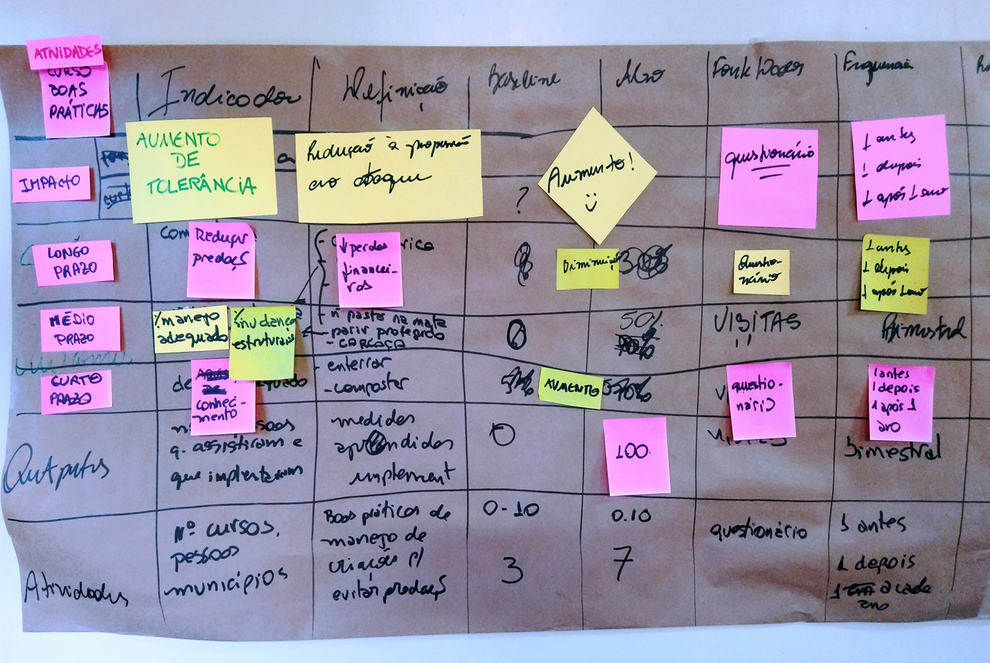 ATIVIDADES
CURSO
BOAS
PRÁTICAS
Indicador
Definição
Baseline
Alvo
Frequência
IMPACTO
AUMENTO
DE
TOLERÂNCIA
Redução à
ao ataque
?
Aumento!
questionário
1 antes
1 depois
1 após 1 ano
LONGO
PRAZO
Com
Reduzir
↓perdas
financei-
ras
Diminuiu
Questio-
nário
1 antes
1 depois
1 após 1 ano
MÉDIO
PRAZO
% manejo
adequado
% mudanças
estruturais
n pasto na mata
parir protegido
- CARCAÇA
0
50%
VISITAS
Bimestral
CURTO
PRAZO
de
conheci-
mento
- enterrar
- compostar
AUMENTO
questio-
nário
1 antes
1 depois
1 após 1
ano
Outputs
q. assistiram e
que implentaram
medidas
aprendidas
implement
0
100.
bimestral
Atividades
Nº cursos,
pessoas
municípios
Boas práticas de
manejo de
criações p/
evitar predaçs
0-10
3
0.10
7
questionário
1 antes
1 depois
1 a cada
ano